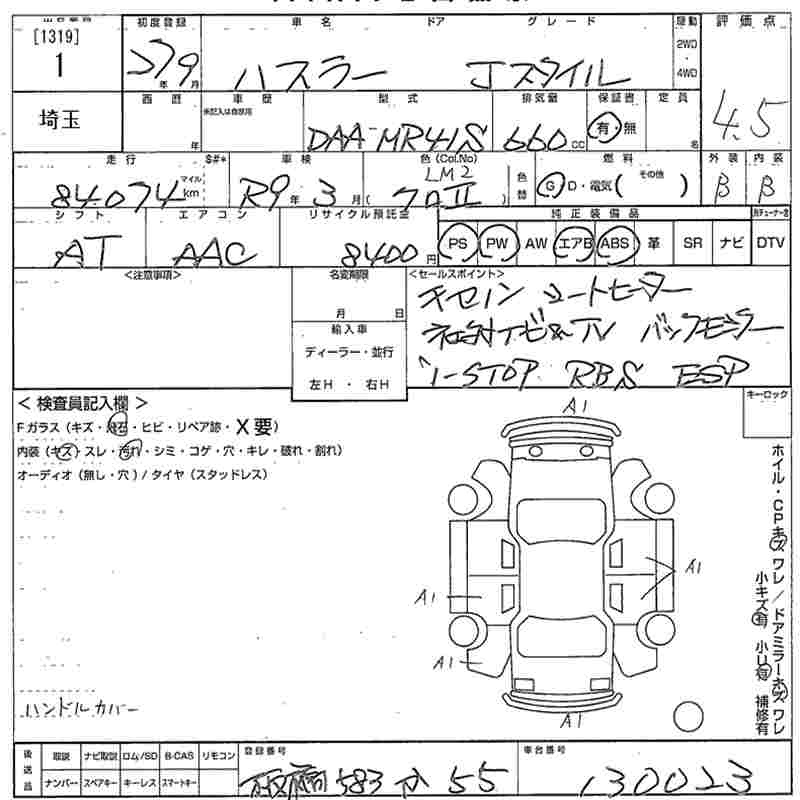 [1319]
1
初度登録
27 9
年 月
車名 ドア グレード
ハスラー Jスタイル
駆動
2WD
・
4WD
評価点
4.5
埼玉
西暦
年
車歴
未記入は自家用
型式
DAA-MR41S
排気量
660 cc
保証書
有・無
定員
名
走行 S#*
84,074 マイル km
車検
R9年 3月
色(Col.No)
LM2
クロII
色替
燃料
G D・電気( その他 )
外装 内装
B B
シフト
AT
エアコン
AAC
リサイクル預託金
8400円
純正装備品
PS PW AW エアB ABS 革 SR ナビ DTV
<注意事項>
名変期限
月 日
輸入車
ディーラー・並行
左H ・ 右H
<セールスポイント>
キセノン シートヒーター
TV バックモニター
i-STOP RBS ESP
<検査員記入欄>
Fガラス(キズ・飛石・ヒビ・リペア跡・X要)
内装(キズ・スレ・汚れ・シミ・コゲ・穴・キレ・破れ・割れ)
オーディオ(無し・穴)/タイヤ(スタッドレス)
キーロック
A1
A1
A1
A1
A1
ホイル・CPキズ ワレ/ドアミラーキズ ワレ
小キズ有 小U有 補修有
ハンドルカバー
後送品
取説 ナビ取説 ロム/SD B-CAS リモコン
ナンバー スペアキー キーレス スマートキー
登録番号
板橋 583 か 55
車台番号
130023